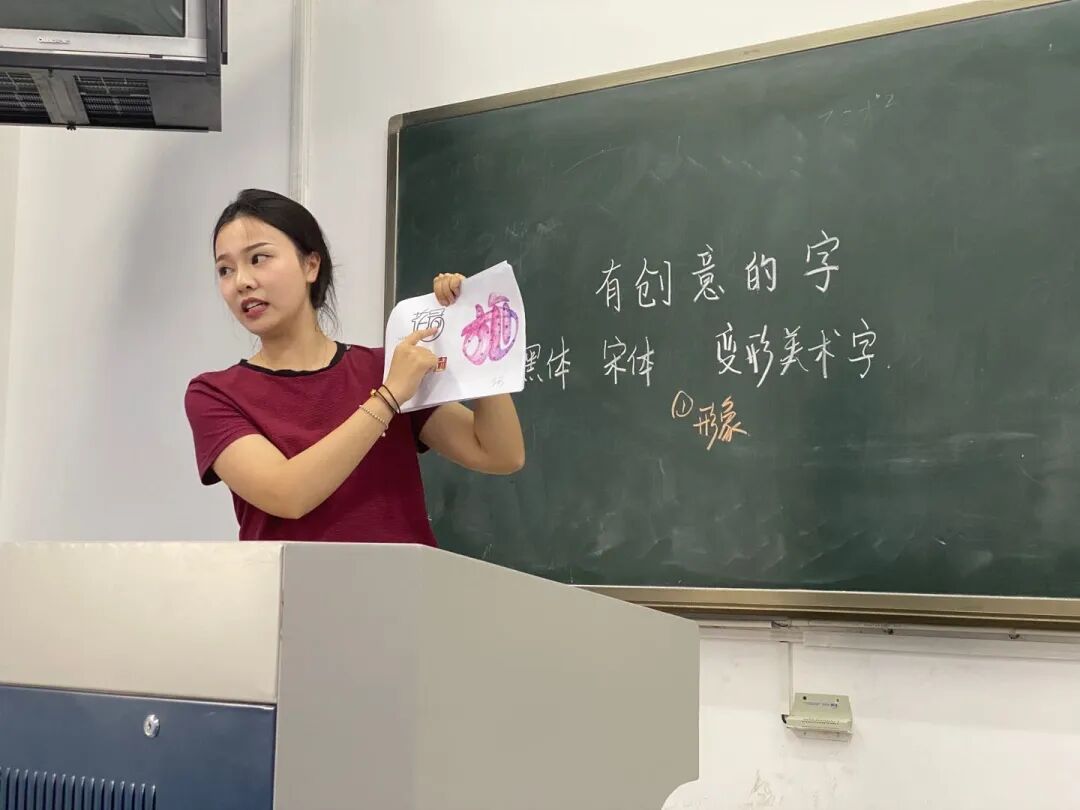 有创意的字
黑体 宋体 变形美术字.
① 形象